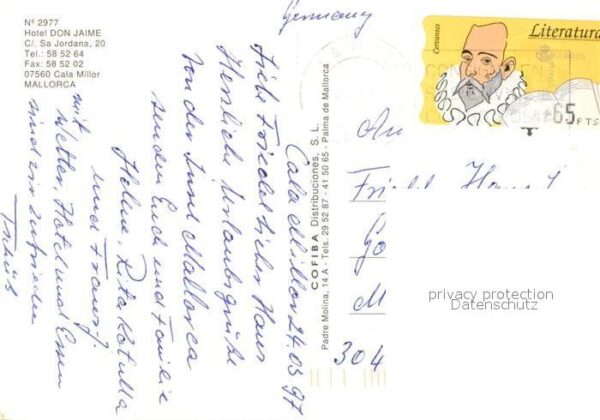 Nº 2977
Hotel DON JAIME
C/. Sa Jordana, 20
Tel.: 58 52 64
Fax: 58 52 02
07560 Cala Millor
MALLORCA
Germany
Cala Millor 24.03.97
Herzliche Urlaubsgrüße
von der Insel Mallorca
senden Euch und Familie
Helma, Rita Kotulla
und Franz J.
mit Wetter, Hotel und Essen
sind wir zufrieden
Tschüß
COFIBA Distribuciones, S. L.
Padre Molina, 14 A - Tels. 29 52 87 - 41 50 65 - Palma de Mallorca
Cervantes
Literatura
CORREOS
ESPAÑA
65 PTS
An
304
privacy protection
Datenschutz